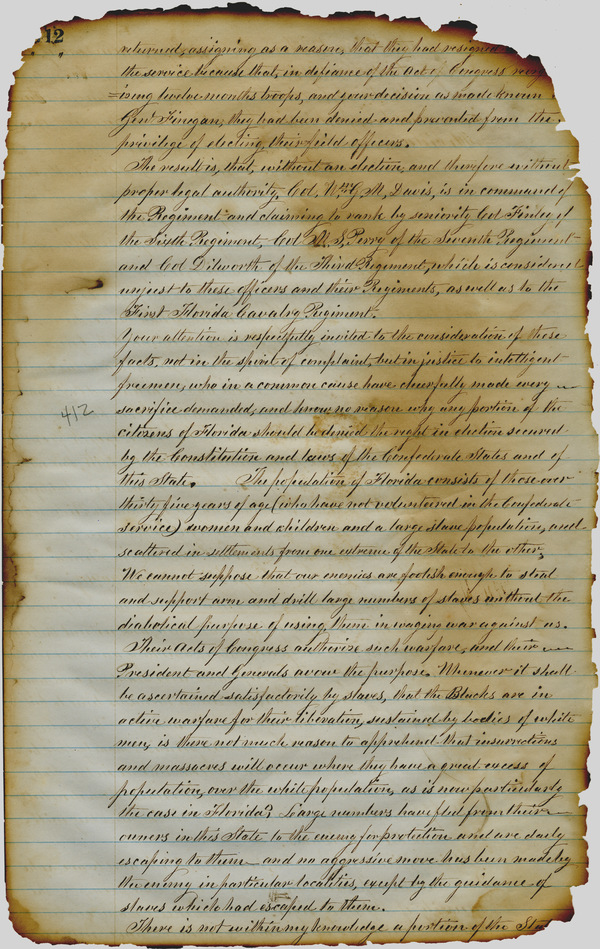 12
returned, assigning as a reason, that they had resigned
the service because that, in defiance of the Act of Congress
=ising twelve months troops, and your decision as made known
Genl Finegan, they had been denied and prevented from the
privilege of electing their field officers.
The result is, that, without an election, and therefore without
proper legal authority, Col. Wm G. M. Davis, is in command of
the Regiment and claiming to rank by seniority Col Finley of
the Sixth Regiment, Col M. S. Perry of the Seventh Regiment
and Col Dilworth of the Third Regiment, which is considered
unjust to these officers and their Regiments, as well as to the
First Florida Cavalry Regiment.
Your attention is respectfully invited to the consideration of these
facts, not in the spirit of complaint, but in justice to intelligent
freemen, who in a common cause have cheerfully made every
412
sacrifice demanded, and know no reason why any portion of the
citizens of Florida should be denied the right in election secured
by the Constitution and laws of the Confederate States and of
this State. The population of Florida consists of those over
thirty five years of age (who have not volunteered in the Confederate
service) women and children and a large slave population, and
scattered in settlements from one extreme of the State to the other,
We cannot suppose that our enemies are foolish enough to steal
and support arm and drill large numbers of slaves without the
diabolical purpose of using them in waging war against us.
Their Acts of Congress authorize such warfare, and their
President and Generals avow the purpose. Whenever it shall
be ascertained satisfactorily by slaves, that the Blacks are in
active warfare for their liberation, sustained by bodies of white
men, is there not much reason to apprehend that insurrections
and massacres will occur where they have a great excess of
population, over the white population, as is now particularly
the case in Florida? Large numbers have fled from their
owners in this State to the enemy for protection and are daily
escaping to them and no aggressive move has been made by
the enemy in particular localities, except by the guidance of
slaves which had escaped to them.
There is not within my knowledge a portion of the State